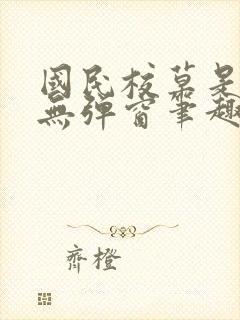 國民校草是
無彈窗筆趣
齊橙